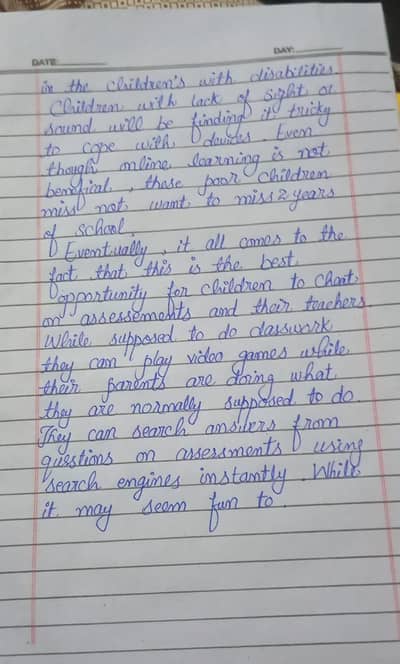 DAY:
DATE:
in the children's with disabilities.
Children with lack of sight or
sound will be finding it tricky
to cope with devices. Even
though online learning is not
beneficial, these poor children
miss not want to miss 2 years
of school.
Eventually, it all comes to the
fact that this is the best
opportunity for children to cheat
on assessements and their teachers
While supposed to do classwork
they can play video games while
their parents are doing what
they are normally supposed to do.
They can search answers from
questions on assessments using
search engines instantly. While
it may seem fun to